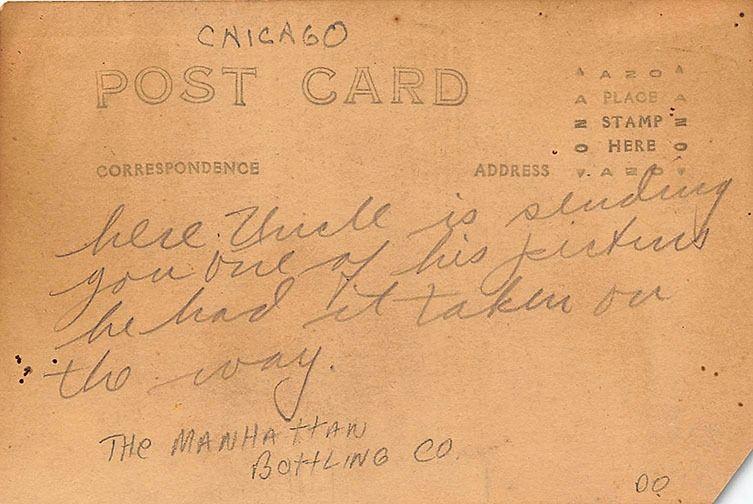 CHICAGO
POST CARD
AZO
PLACE
STAMP
HERE
AZO
CORRESPONDENCE
ADDRESS
here Uncle is sending
you one of his pictures
he had it taken on
the way.
THE MANHATTAN
BOTTLING CO.
DO